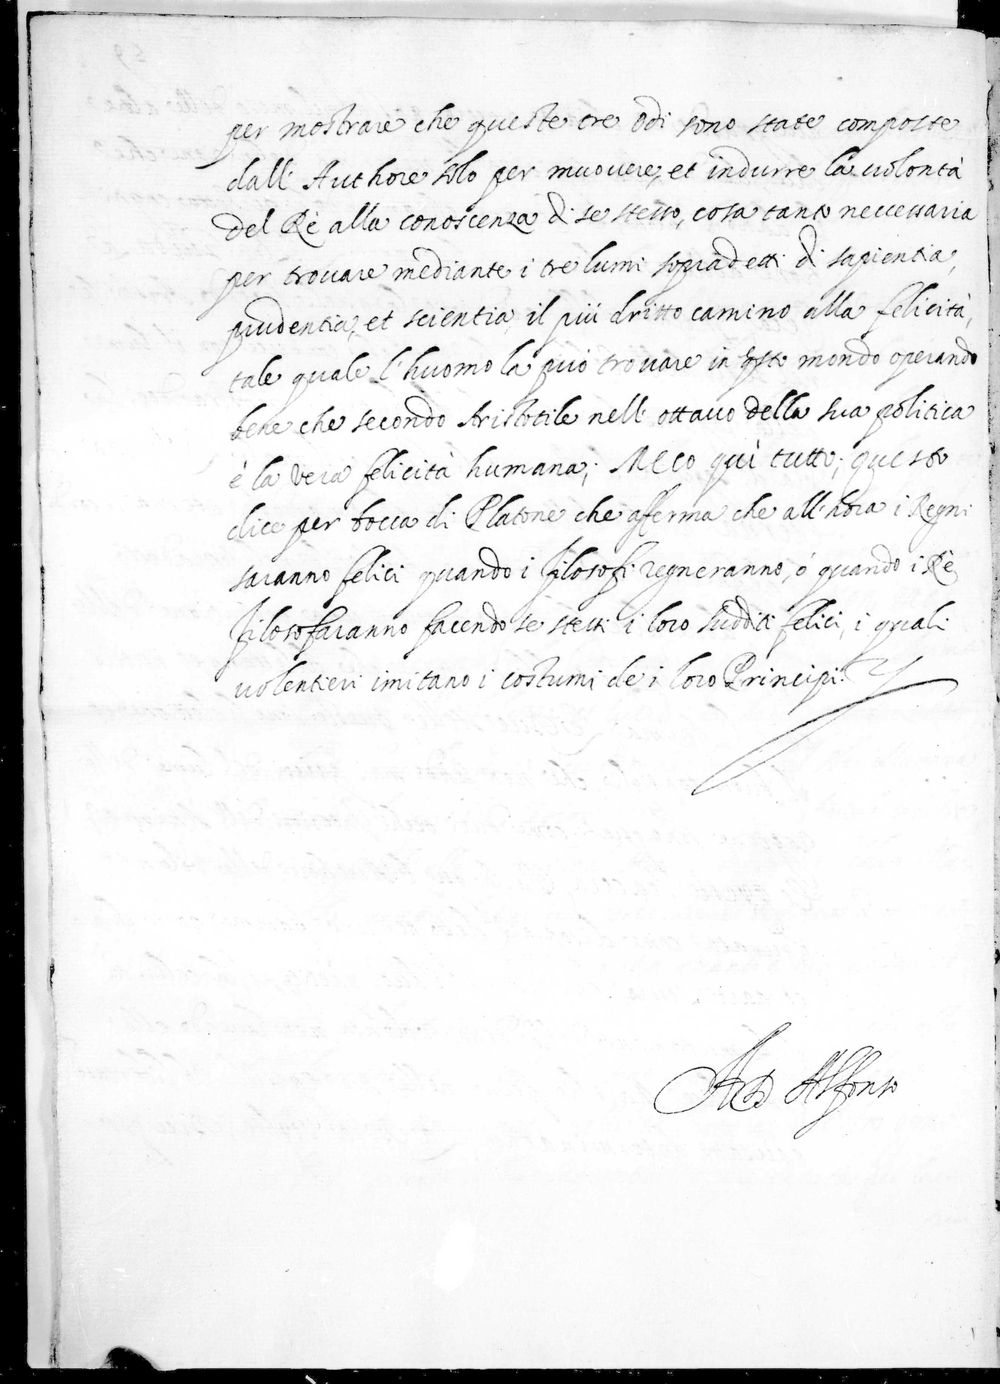 per mostrare che queste tre Odi sono state composte
dall' Authore solo per muouere, et indurre la uolontà
del Rè alla conoscenza di se stesso, cosa tanto neccessaria
per trouare mediante i tre lumi sopradetti di sapientia,
prudentia, et scientia, il più dritto camino alla felicità,
tale quale l'huomo la può trouare in qsto mondo operando
bene che secondo Aristotile nell' ottauo della sua politica
è la vera felicità humana; Meco quì tutto; questo
dice per bocca di Platone che afferma che all'hora i Regni
saranno felici quando i filosofi regneranno, ó quando i Rè
filosofaranno facendo se stessi i loro sudditi felici, i quali
uolentieri imitano i costumi de i loro Principi.
Alfonso